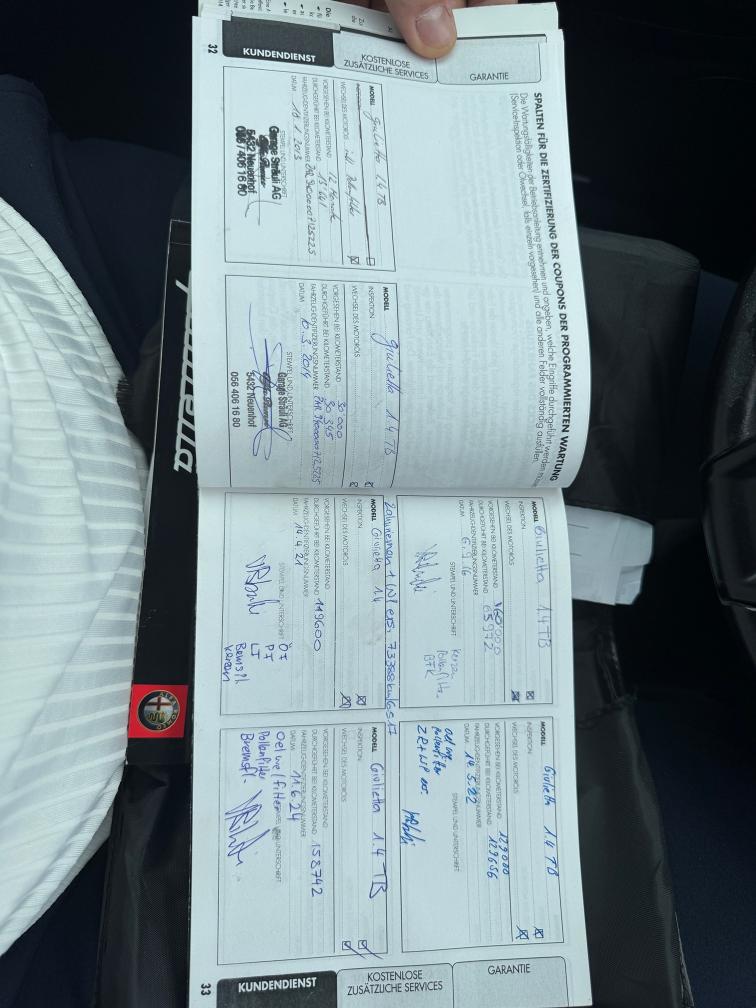 32
KUNDENDIENST
KOSTENLOSE
ZUSÄTZLICHE SERVICES
GARANTIE
SPALTEN FÜR DIE ZERTIFIZIERUNG DER COUPONS DER PROGRAMMIERTEN WARTUNG
Die Wartungstätigkeiten der Betriebsanleitung entnehmen und angeben, welche Eingriffe durchgeführt werden
(Service-Inspektion oder Ölwechsel, falls einzeln vorgesehen) und alle anderen Felder vollständig ausfüllen.
MODELL Giulietta 1.4 TB
INSPEKTION
WECHSEL DES MOTORÖLS inkl. Pollenfilter
VORGESEHEN BEI KILOMETERSTAND 12 Monate
DURCHGEFÜHRT BEI KILOMETERSTAND
FAHRZEUG-IDENTIFIZIERUNGSNUMMER
DATUM 18.1.2013
STEMPEL UND UNTERSCHRIFT
Garage Sträuli AG
5432 Neuenhof
056 / 406 16 80
MODELL Giulietta 1.4 TB
INSPEKTION
WECHSEL DES MOTORÖLS
VORGESEHEN BEI KILOMETERSTAND 30 000
DURCHGEFÜHRT BEI KILOMETERSTAND 30 345
FAHRZEUG-IDENTIFIZIERUNGSNUMMER
DATUM 10.3.2014
STEMPEL UND UNTERSCHRIFT
Garage Sträuli AG
5432 Neuenhof
056 406 16 80
MODELL Giulietta 1.4 TB
INSPEKTION
WECHSEL DES MOTORÖLS
VORGESEHEN BEI KILOMETERSTAND 60'000
DURCHGEFÜHRT BEI KILOMETERSTAND 65972
FAHRZEUG-IDENTIFIZIERUNGSNUMMER
DATUM 6.1.16
STEMPEL UND UNTERSCHRIFT
Kerzen
Pollenfilter
Zahnriemen + WP ers. 73388km
MODELL Giulietta 1.4
INSPEKTION
WECHSEL DES MOTORÖLS
VORGESEHEN BEI KILOMETERSTAND
DURCHGEFÜHRT BEI KILOMETERSTAND 119600
FAHRZEUG-IDENTIFIZIERUNGSNUMMER
DATUM 14.4.21
STEMPEL UND UNTERSCHRIFT
ÖF
PF
LF
Bremsfl.
Kerzen
MODELL Giulietta 1.4 TB
INSPEKTION
WECHSEL DES MOTORÖLS
VORGESEHEN BEI KILOMETERSTAND 129000
DURCHGEFÜHRT BEI KILOMETERSTAND 129656
FAHRZEUG-IDENTIFIZIERUNGSNUMMER
DATUM 14.5.22
STEMPEL UND UNTERSCHRIFT
Pollenfilter
ZR + WP ers.
MODELL Giulietta 1.4 TB
INSPEKTION
WECHSEL DES MOTORÖLS
VORGESEHEN BEI KILOMETERSTAND
DURCHGEFÜHRT BEI KILOMETERSTAND 158742
FAHRZEUG-IDENTIFIZIERUNGSNUMMER
DATUM 11.6.24
STEMPEL UND UNTERSCHRIFT
Oelwe/filter
Pollenfilter
Bremsfl.
33
KUNDENDIENST
KOSTENLOSE
ZUSÄTZLICHE SERVICES
GARANTIE